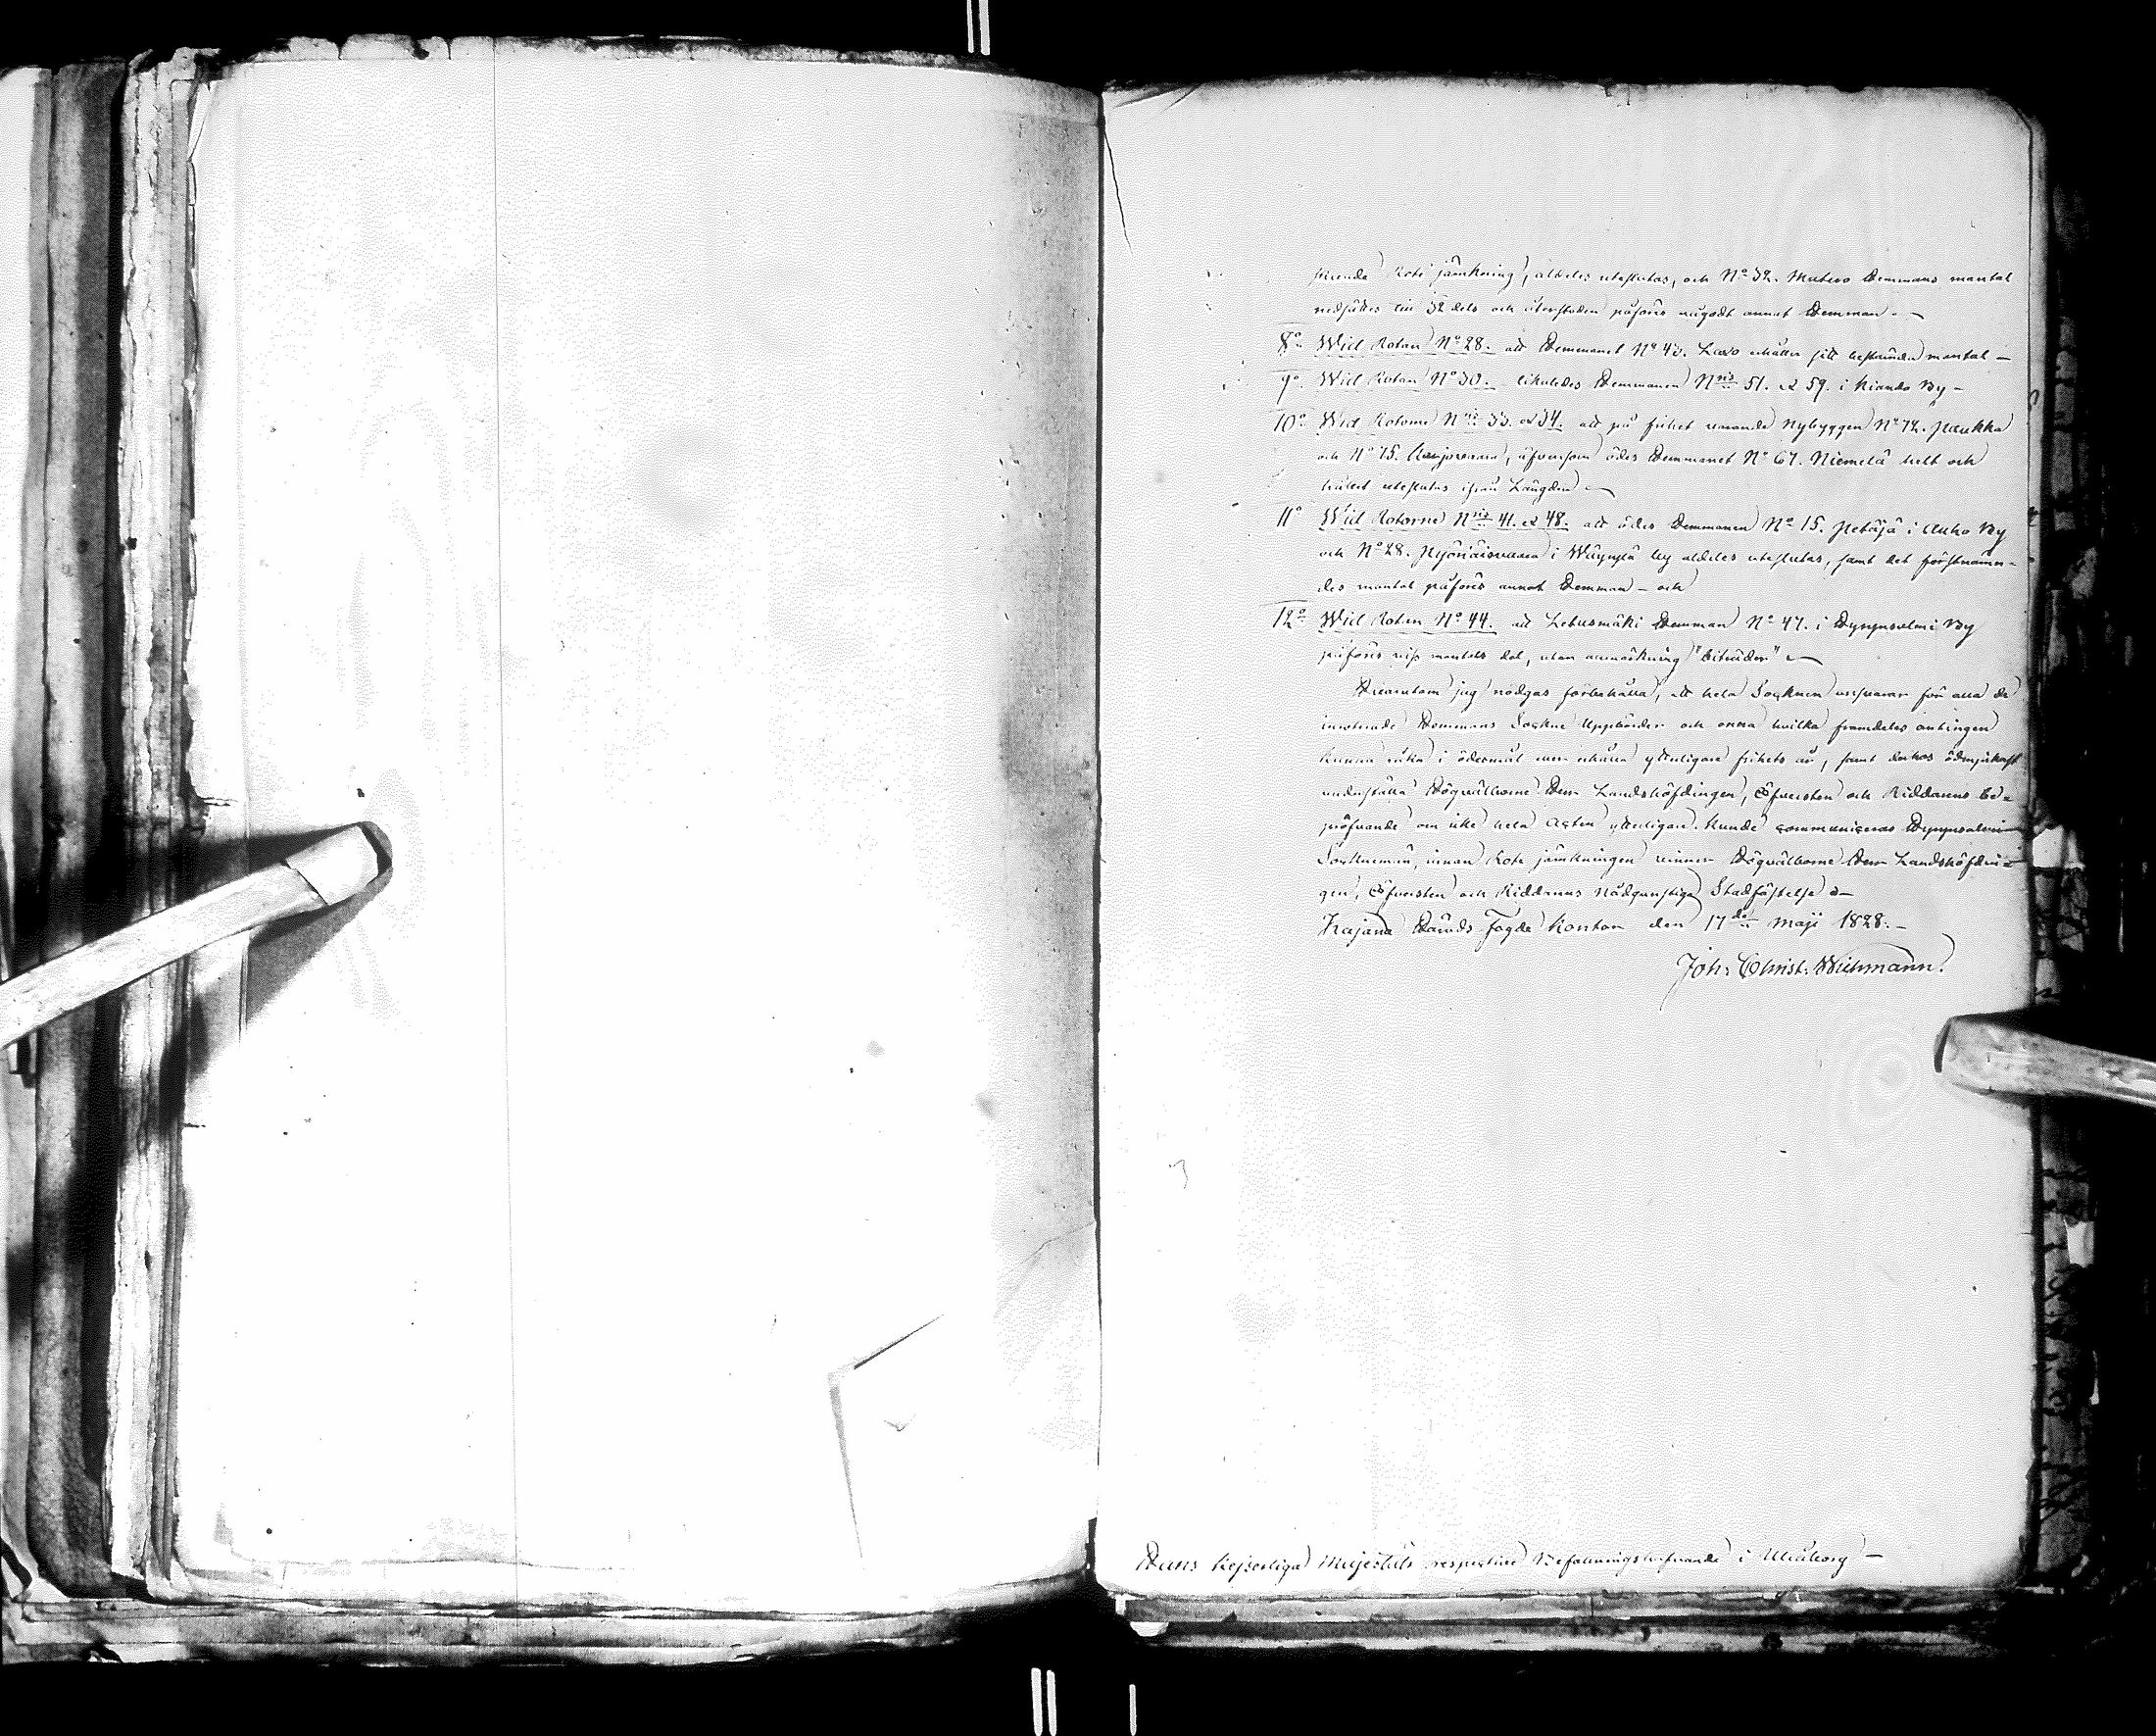 skeende Rote jämkning, aldeles uteslutas, och N:o 32. Mustavo Hemmans mantal
nedsättes till 32 dels och återstoden påföres någodt annat Hemman. —
8:o Wid Rotan N:o 28. att Hemmanet N:o 43. Lavo erhåller sitt bestämda mantal —
9:o Wid Rotan N:o 30. likaledes Hemmanen N:ris 51. et 59. i Kiando By —
10:o Wid Rotorne N:ris 33. et 34. att på frihet varande Nybyggen N:o 72. Paukka
och N:o 75. äfvensom ödes Hemmanet N:o 67. Niemelä helt och
hållet uteslutas ifrån Längden —
11:o Wid Rotorne N:ris 41. et 48. att ödes Hemmanen N:o 15. Petäjä i Auho By
och N:o 28. i By aldeles uteslutas, samt det förstnämn-
des mantal påföres annat Hemman — och
12:o Wid Rotan N:o 44. att Lehusmäki Hemman N:o 47. i Hyrynsalmi By
påföres viss mantals del, utan anmärkning "biträder" —
Hvarutom jag nödgas förbehålla, att hela Socknen ansvarar för alla de
inroterade Hemmans Sockne Uppbörder och onera hvilka framdeles antingen
kunna råka i ödesmål eller erhålla ytterligare frihets år, samt derhos ödmjukast
underställa Högvälborne Herr Landshöfdingen, Öfversten och Riddarens be-
pröfvande om icke hela Acten ytterligare kunde communiceras Hyrynsalmi
Socknemän, innan Rote jämkningen vinner Högvälborne Herr Landshöfdin-
gen, Öfversten och Riddarens Nådgunstiga Stadfästelse —
Kajana Härads Fogde Kontor den 17:de Maji 1828. —
Joh: Christ: Wichmann.
Hans Kejserliga Majestäts respective Befallningshafvande i Uleåborg —